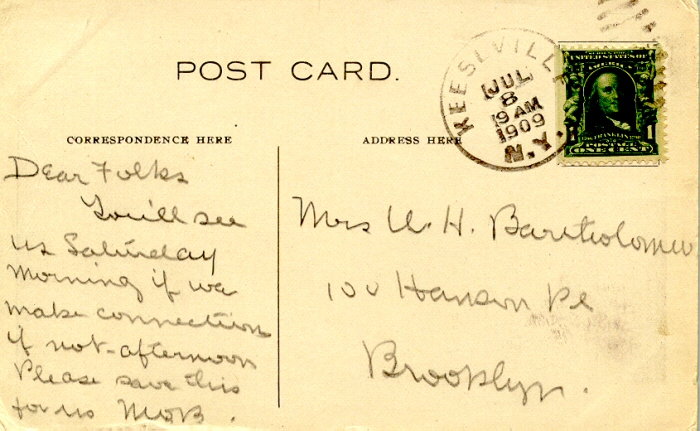 POST CARD.
KEESEVILLE
JUL
8
9 AM
1909
N.Y.
SERIES 1902
UNITED STATES OF
AMERICA
FRANKLIN
1 1
POSTAGE
ONE CENT
CORRESPONDENCE HERE
Dear Folks
You'll see
us Saturday
morning if we
make connection
if not-afternoon
Please save this
for us MOB.
ADDRESS HERE
Mrs H. Bartholomew
100 Hanson Pl
Brooklyn.